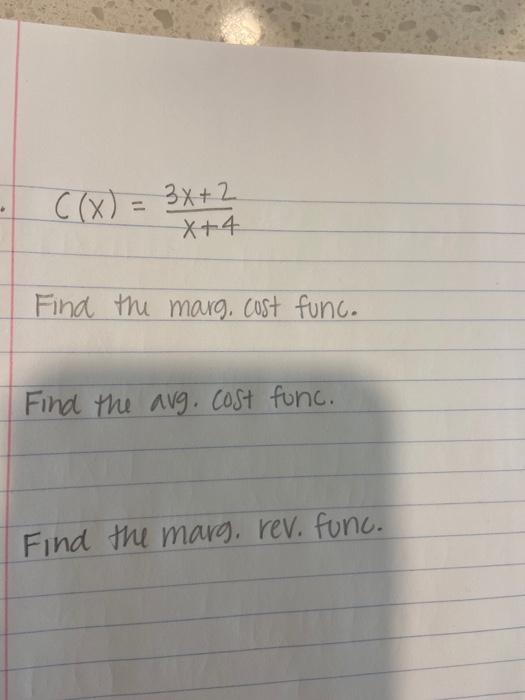 C(x) = 3x+2
x+4
Find the marg. cost func.
Find the avg. cost func.
Find the marg. rev. func.